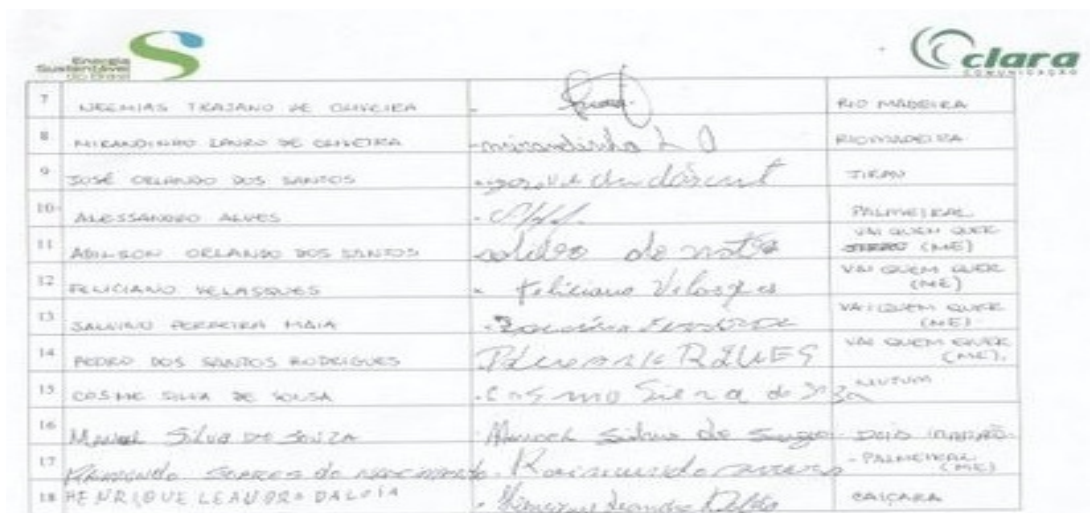 Energia
Sustentável
do Brasil
clara
COMUNICAÇÃO
7 NEEMIAS TRAJANO DE OLIVEIRA - RIO MADEIRA
8 MIRANDINHO LAURO DE OLIVEIRA - mirandinho L O RIO MADEIRA
9 JOSÉ ORLANDO DOS SANTOS JIRAU
10 ALESSANDRO ALVES PALMEIRAL
11 ADILSON ORLANDO DOS SANTOS VAI QUEM QUER
(ME)
12 FELICIANO VELASQUES Feliciano Velasques VAI QUEM QUER
(ME)
13 SALVINO FERREIRA MAIA VAI QUEM QUER
(ME)
14 PEDRO DOS SANTOS RODRIGUES VAI QUEM QUER
(ME).
15 COSME SILVA DE SOUSA MUTUM
16 Manoel Silva de Souza Manoel Silva de DOIS
17 Raimundo SOARES do NASCIMENTO - Raimundo - PALMEIRAL
(ME)
18 HENRIQUE LEANDRO DALOIA - Henrique Leandro CAIÇARA